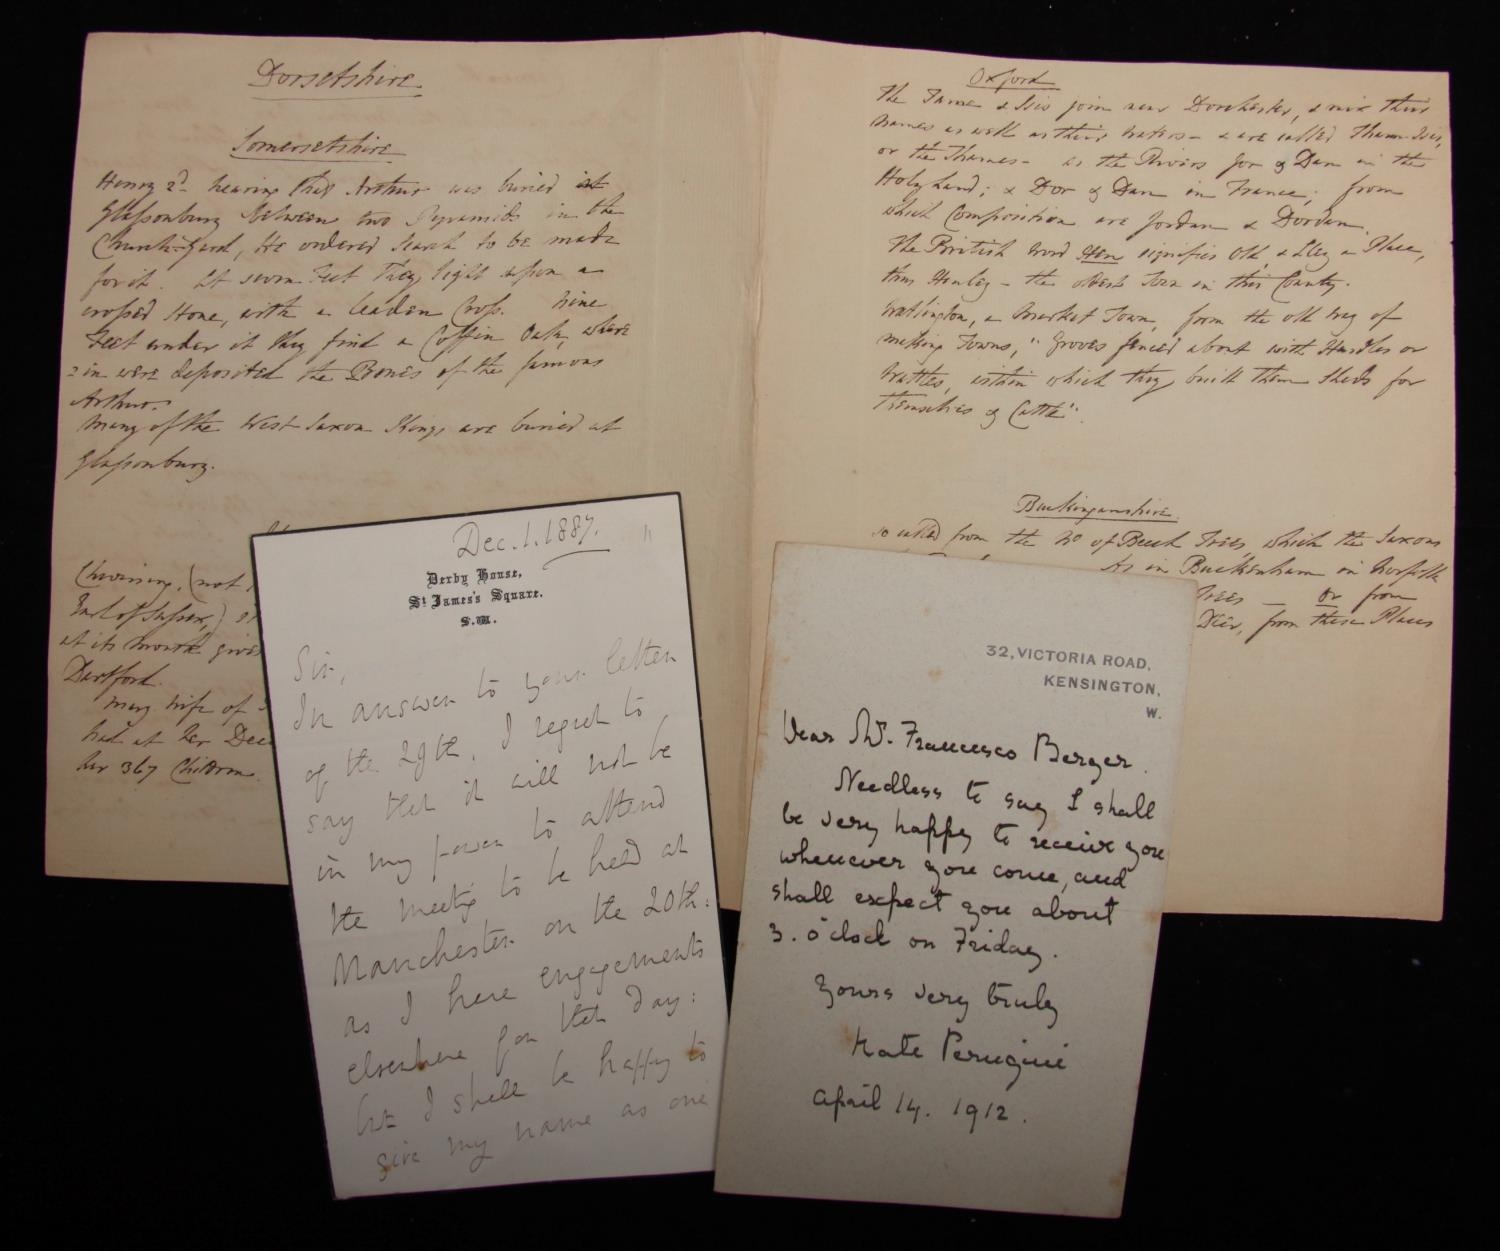 Dorsetshire.
Somersetshire
Henry 2d. hearing that Arthur was buried at
Glassonbury between two Pyramids in the
Church-Yard, He ordered search to be made
for it. At seven Feet they light upon a
crossed stone, with a leaden Cross. Nine
Feet under it they find a Coffin Oak, where
=in were deposited the Bones of the famous
Arthur.
Many of the West Saxon Kings are buried at
Glassonbury.
(not
Earl of Sussex,)
at its mouth gives
Dartford.
Mary wife of
had at her
her 367 Children.
Oxford
The Tame & Isis join near Dorchester, & mix their
names as well as their waters - & are called Tham-Isis,
or the Thames - as the Rivers Jor & Dan in the
Holy Land; & Dor & Dan in France; from
which Composition are Jordan & Dordan.
The British word Hen signifies Old, & Lley a Place,
thus Henley - the oldest Town in this County.
Watlington, a Market Town, from the old way of
making Towns, "Groves fenced about with Hurdles or
Wattles, within which they built them Sheds for
themselves & Cattle".
Buckinghamshire.
so called from the No of Beech Trees, which the Saxons
As in Buckenham in Norfolk
Trees — or from
Deer, from these Places
Dec. 1. 1887.
Derby House,
St James's Square.
S.W.
Sir,
In answer to your letter
of the 29th, I regret to
say that it will not be
in my power to attend
the meeting to be held at
Manchester on the 20th:
as I have engagements
elsewhere for that day:
but I shall be happy to
give my name as one
32, VICTORIA ROAD,
KENSINGTON,
W.
Dear Mr. Francesco Berger.
Needless to say I shall
be very happy to receive you
whenever you come, and
shall expect you about
3. o'clock on Friday.
Yours very truly
Kate Perugini
April 14. 1912.